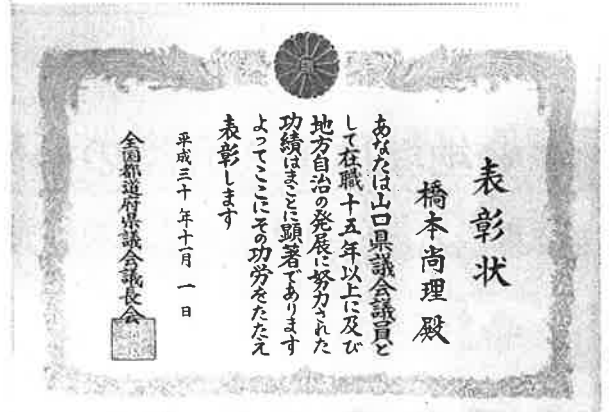 表彰状
橋本尚理殿
あなたは山口県議会議員と
して在職十五年以上に及び
地方自治の発展に努力された
功績はまことに顕著であります
よってここにその功労をたたえ
表彰します
平成三十年十一月一日
全国都道府県議会議長会